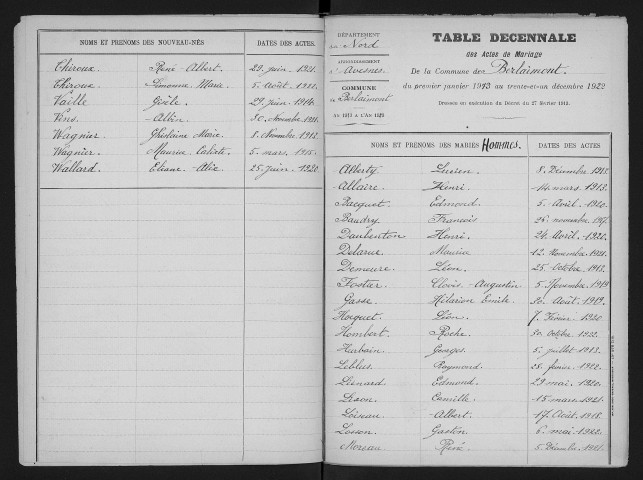 NOMS ET PRENOMS DES NOUVEAU-NÉS DATES DES ACTES.
Thiroux. René Albert. 29 juin. 1921.
Thiroux. Simonne Marie. 5 Août. 1922.
Vaille Gisèle. 29 juin 1914.
Vins Albin 30 Novembre
Wagnier Ghislaine Marie. 8 Novembre 1912.
Wagnier Maurice 5 mars 1915.
Wallard Eliane 25 juin. 1920.
DÉPARTEMENT
du Nord
ARRONDISSEMENT
d'Avesnes
COMMUNE
de Berlaimont
DE 1913 A L'AN 1922
TABLE DECENNALE
des Actes de Mariage
De la Commune de Berlaimont.
du premier janvier 1913 au trente-et-un décembre 1922
Dressée en exécution du Décret du 27 février 1913.
NOMS ET PRÉNOMS DES MARIÉS Hommes. DATES DES ACTES
Alberty Lucien. 8 Décembre
Allaire Henri. 14 mars 1913.
Bacquet Edmond. 5 Avril 1920.
Baudry François 26 novembre
Daubenton Henri. 24 Avril 1920.
Delarue Maurice 12 Novembre 1921.
Demeure Léon. 25 Octobre 1913.
Fostier Clovis-Augustin 5 Novembre 1919
Gasse Hilarion Emile. 30 Août 1919.
Hocquet Léon. 7 Février 1920
Hombert Roche. 30 Octobre 1922.
Hurbain Georges. 5 juillet 1913.
Leblus Raymond. 28 février 1922.
Lienard Edmond. 29 mai 1920.
Camille 15 mars 1921.
Loiseau Albert. 17 Août 1918.
Losson Gaston 6 mai 1922.
Moreau René 5 Décembre